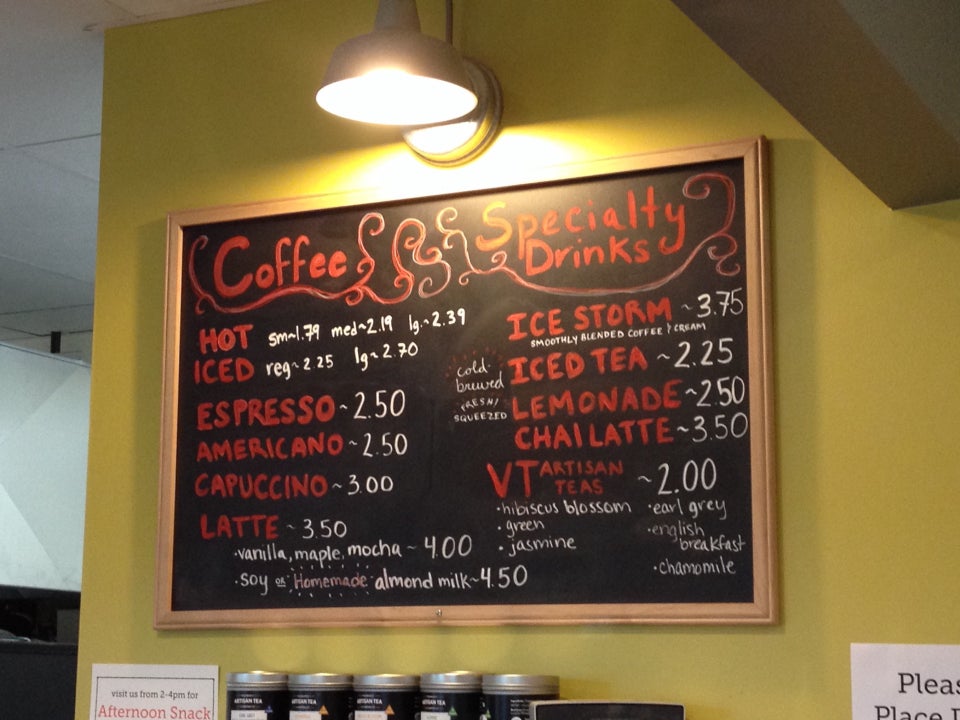 Coffee
HOT sm~1.79 med~2.19 lg.~2.39
ICED reg~2.25 lg~2.70
ESPRESSO~2.50
AMERICANO~2.50
CAPUCCINO~3.00
LATTE~3.50
·vanilla, maple, mocha~4.00
·soy or Homemade almond milk~4.50
Specialty
Drinks
ICE STORM~3.75
SMOOTHLY BLENDED COFFEE & CREAM
cold-
brewed
ICED TEA~2.25
FRESH
SQUEEZED
LEMONADE~2.50
CHAI LATTE~3.50
VT ARTISAN
TEAS ~2.00
·hibiscus blossom
·green
·jasmine
·earl grey
·english
breakfast
·chamomile
visit us from 2-4pm for
Afternoon Snack
ARTISAN TEA
ARTISAN TEA
ARTISAN TEA
ARTISAN TEA
ARTISAN TEA
Place